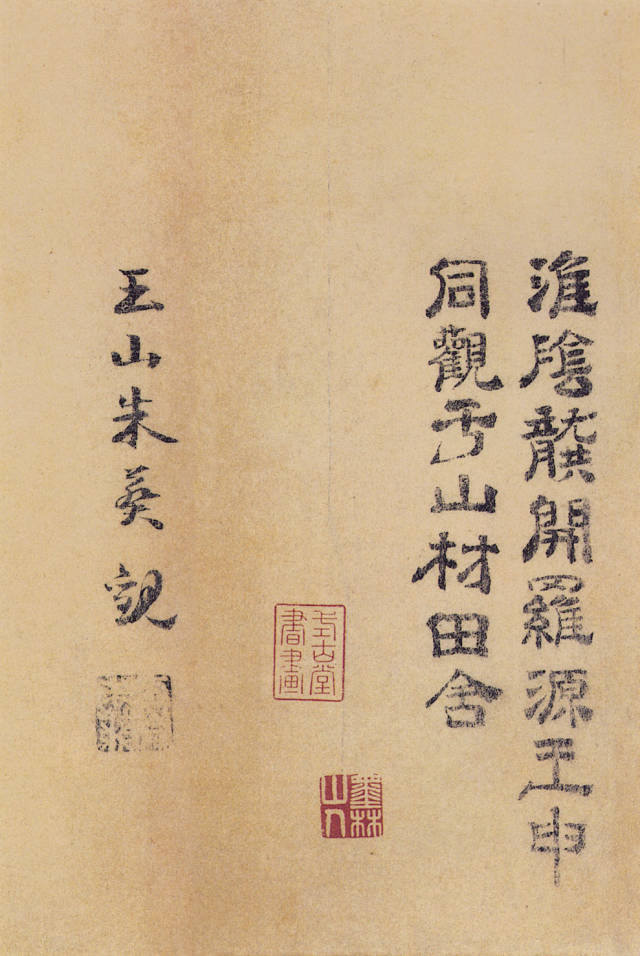 淮陰龔開羅源王申
同觀于山材田舍
式古堂書畫
墨林山人
王山朱英觀